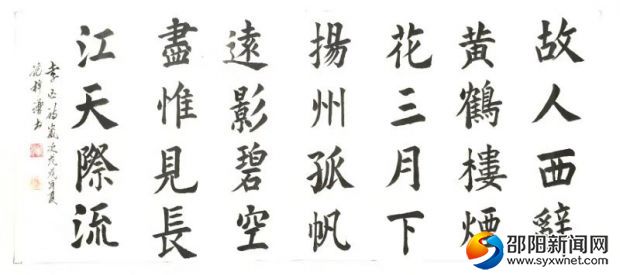 故人西辭
黄鶴樓煙
花三月下
揚州孤帆
遠影碧空
盡惟見長
江天際流
李白詩歲次戊戌年夏
邵阳新闻网
www.syxwnet.com